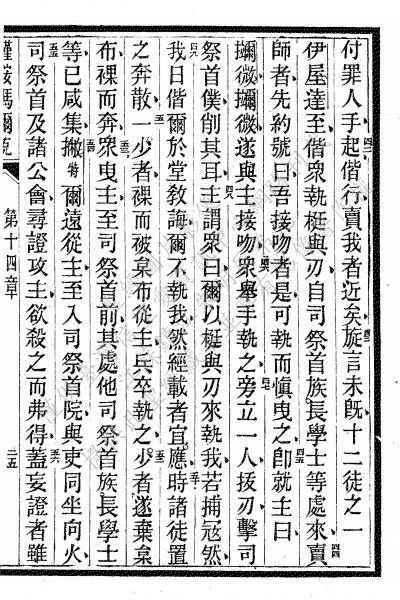 付罪人手起偕行賣我者近矣旋言未旣十二徒之一
伊屋達至偕衆執梃與刃自司祭首族長學士等處來賣
師者先約號曰吾接吻者是可執而愼曳之卽就主曰
攋微攋微遂與主接吻衆舉手執之旁立一人拔刃擊司
祭首僕削其耳主謂衆曰爾以梃與刃來執我若捕寇然
我日偕爾於堂敎誨爾不執我然經載者宜應時諸徒置
之奔散一少者裸而被枲布從主兵卒執之少者遂棄枲
布裸而奔衆曳主至司祭首前其處他司祭首族長學士
等已咸集撇特爾遠從主至入司祭首院與吏同坐向火
司祭首及諸公會尋證攻主欲殺之而弗得蓋妄證者雖
瑪爾克 第十四章 三五